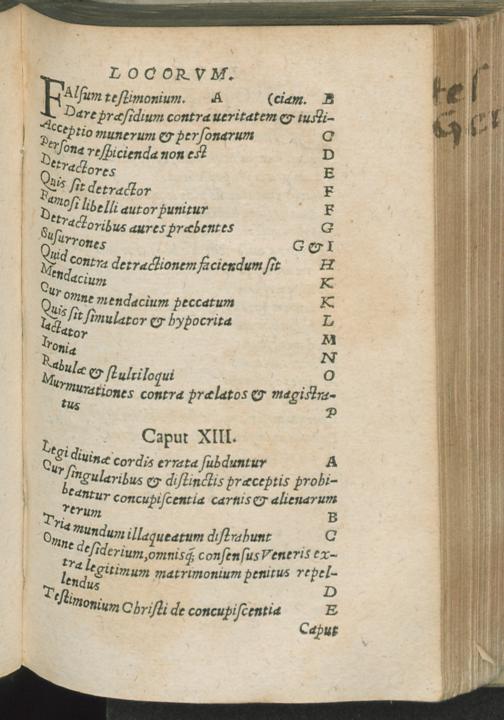 LOCORVM.
FAlsum testimonium. A (ciam. B
Dare præsidium contra ueritatem & iusti-
Acceptio munerum & personarum C
Persona respicienda non est D
Detractores E
Quis sit detractor F
Famosi libelli autor punitur F
Detractoribus aures præbentes G
Susurrones G & I
Quid contra detractionem faciendum sit H
Mendacium K
Cur omne mendacium peccatum K
Quis sit simulator & hypocrita L
Iactator M
Ironia N
Rabulæ & stultiloqui O
Murmurationes contra prælatos & magistra-
tus P
Caput XIII.
Legi diuinæ cordis errata subduntur A
Cur singularibus & distinctis præceptis probi-
beantur concupiscentia carnis & alienarum
rerum B
Tria mundum illaqueatum distrahunt C
Omne desiderium, omnisq; consensus Veneris ex-
tra legitimum matrimonium penitus repel-
lendus D
Testimonium Christi de concupiscentia E
Caput